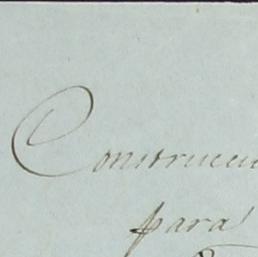 Construccio
para